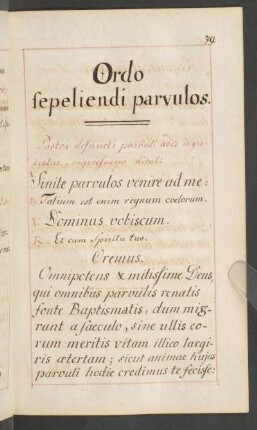 79.
Ordo
sepeliendi parvulos.
Pastor defuncti parvuli
Sinite parvulos venire ad me:
R. Talium est enim regnum coelorum.
V. Dominus vobiscum.
R. Et cum Spiritu tuo.
Oremus.
Omnipotens & mitissime Deus,
qui omnibus parvulis renatis
fonte Baptismatis, dum mig-
rant a saeculo, sine ullis eo-
rum meritis vitam illico largi-
ris aetertam; sicut animae hujus
parvuli hodie credimus te fecisse: